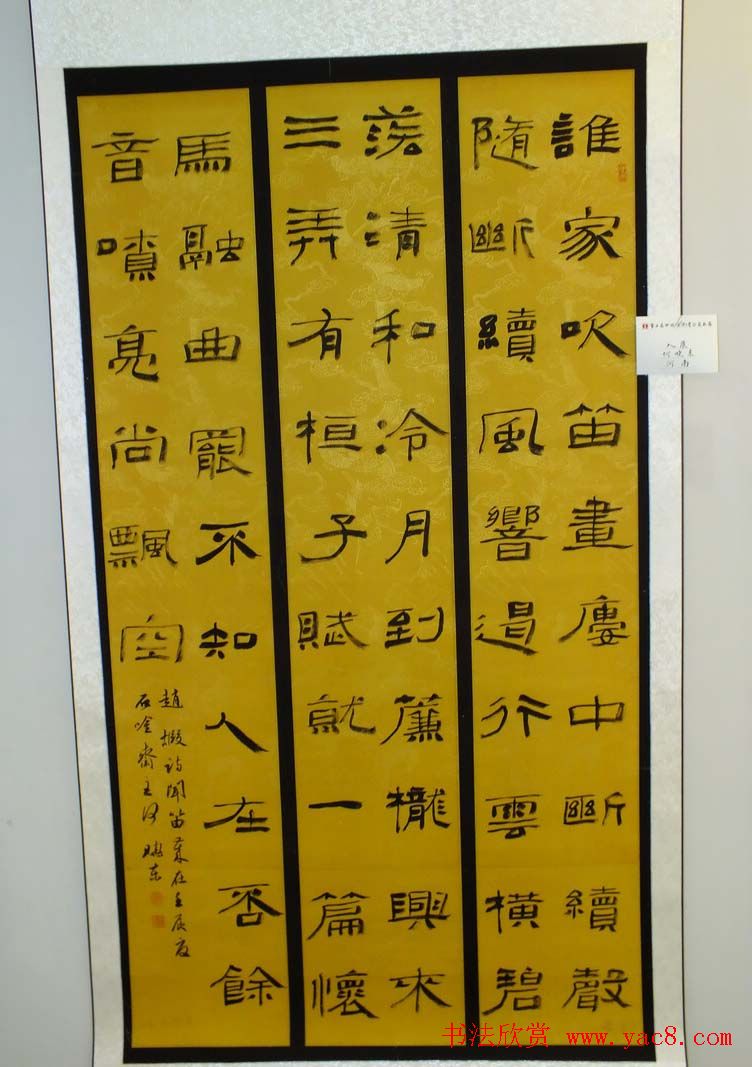 誰家吹笛畫廔中斷續聲
隨斷續風響遏行雲橫碧
落清和冷月到簾櫳興來
三弄有桓子賦就一篇懷
馬融曲罷不知人在否餘
音嘹亮尚飄空
趙嘏詩聞笛歲在壬辰夏
石唫齋主何曉东
入展
河南
书法欣赏 www.yac8.com